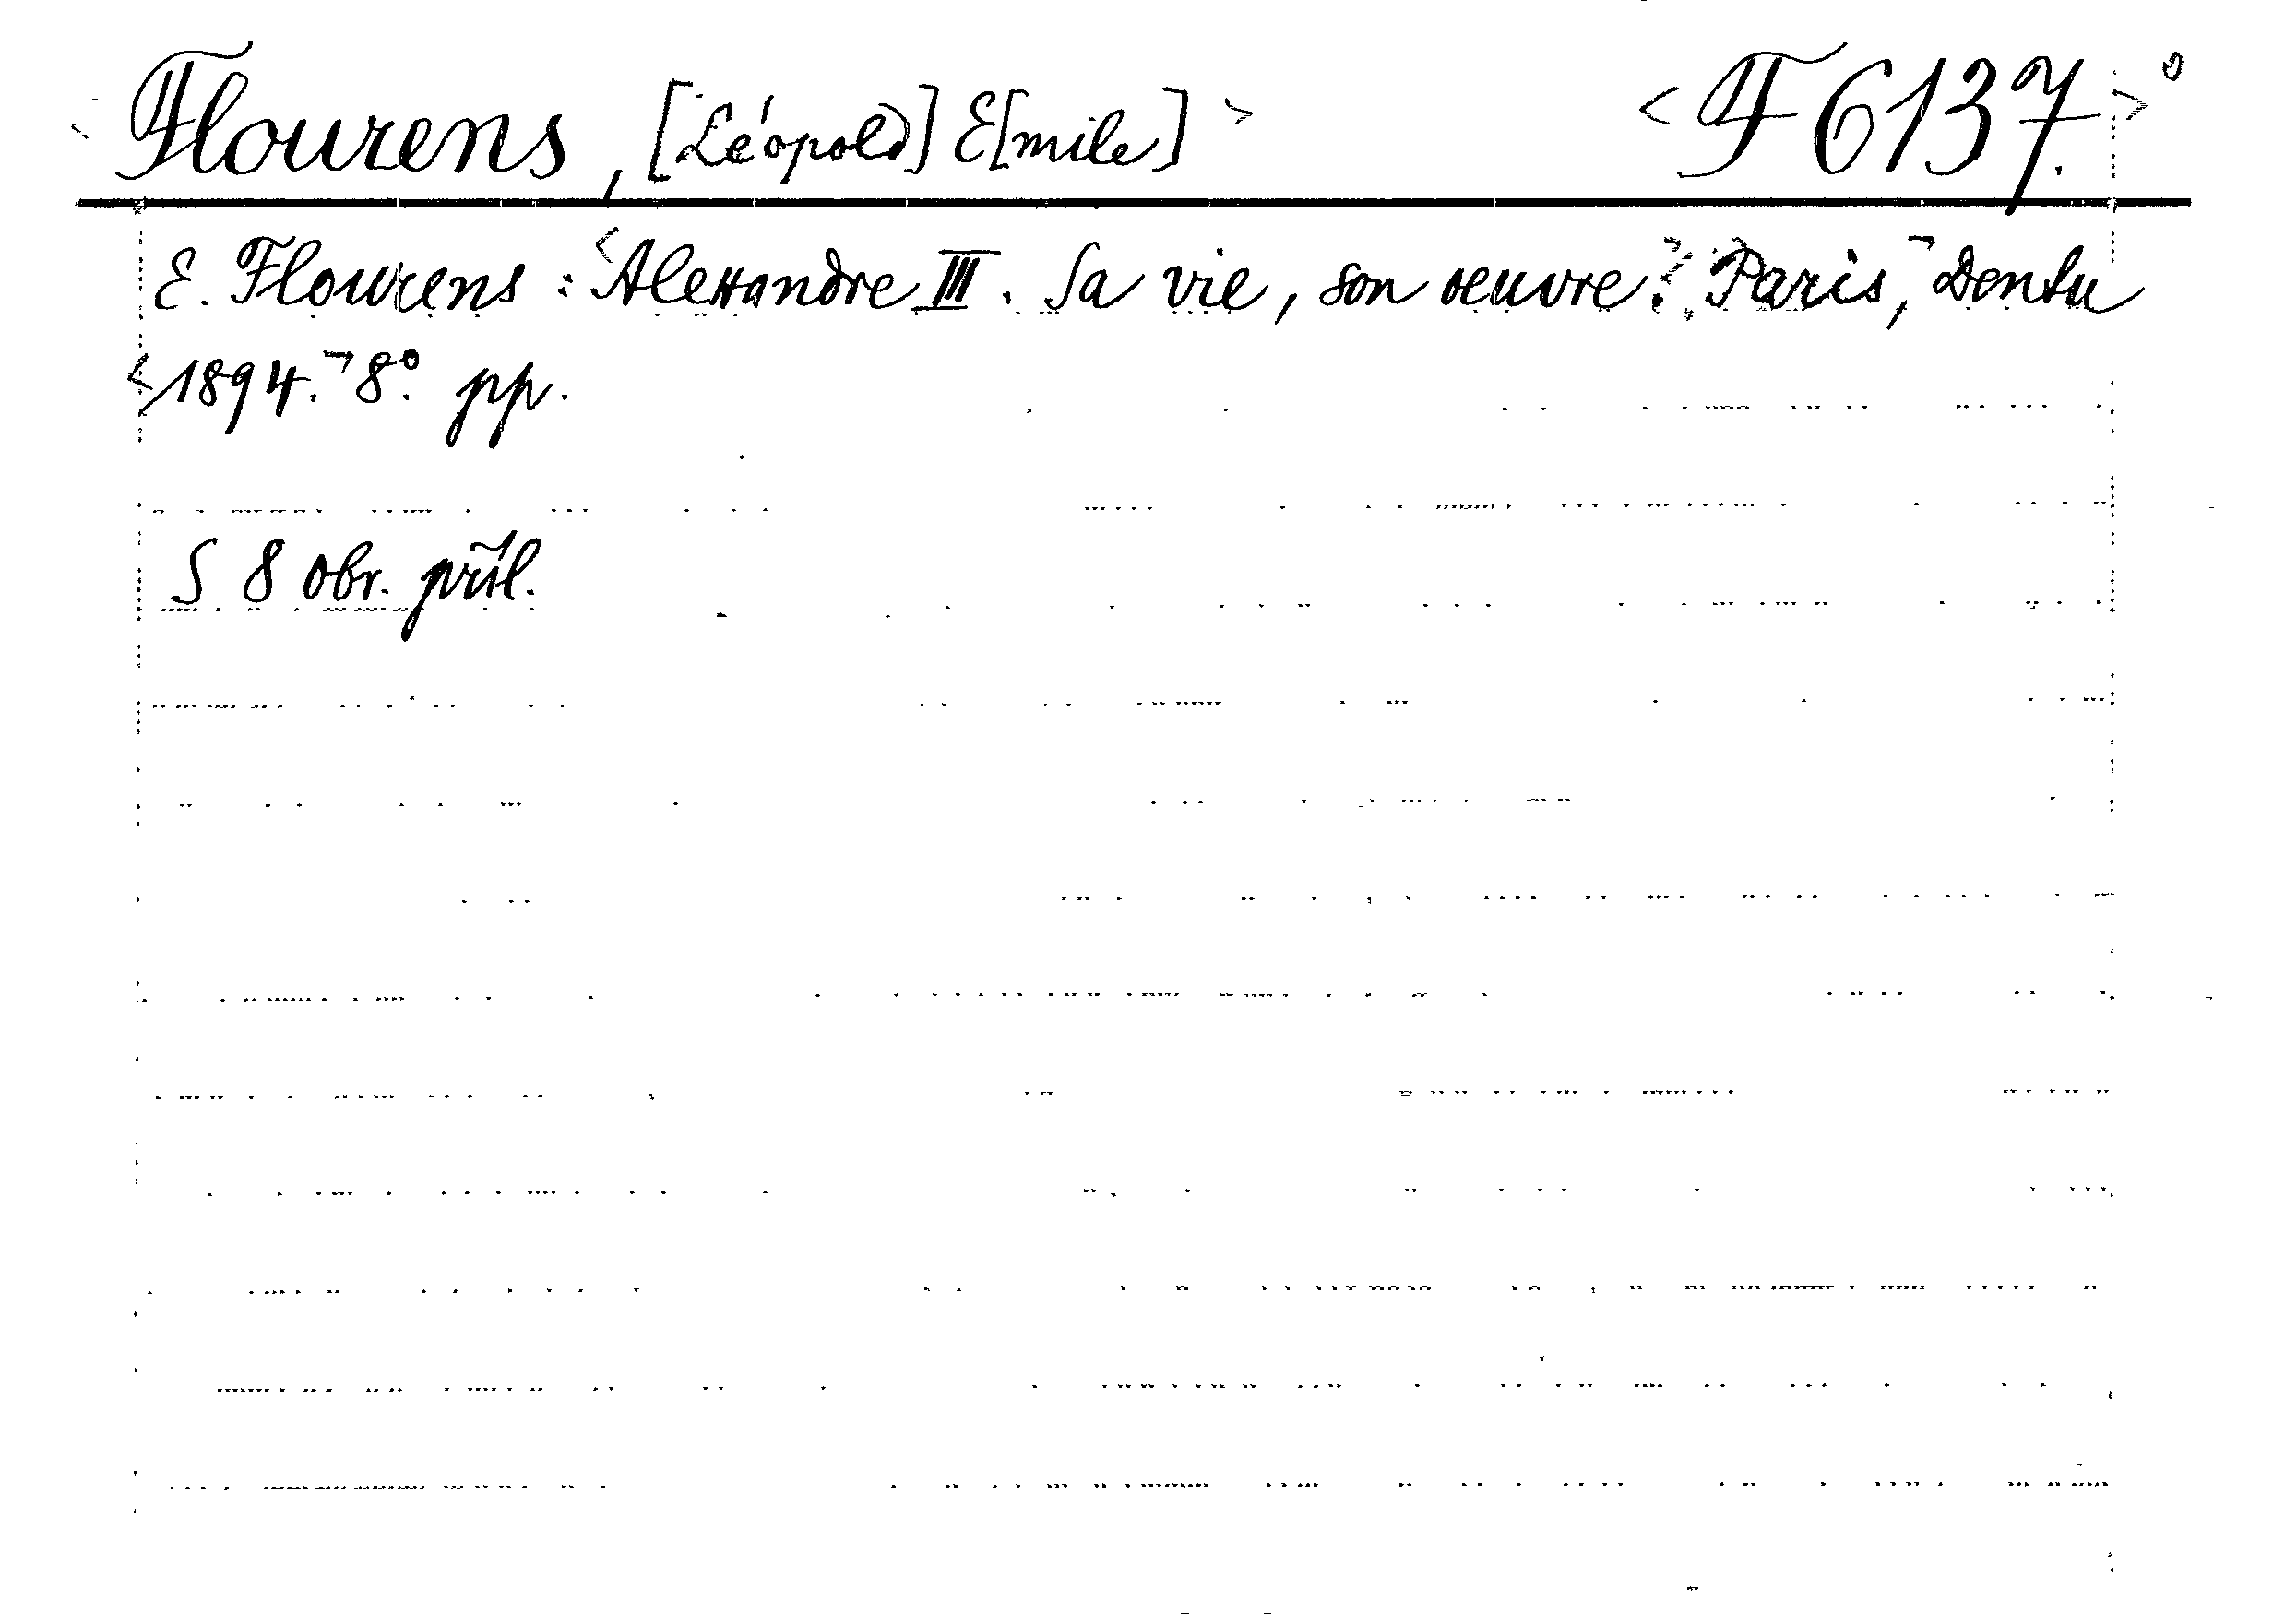 Flourens, [Léopold] E[mile] <F 6137.>
E. Flourens: Alexandre III. Sa vie, son oeuvre. Paris, Dentu
1894. 8°. pp.
S 8 obr. příl.